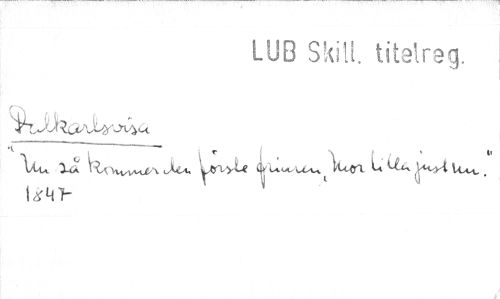 LUB Skill. titelreg.
Dalkarlsvisa
"Nu så kommer den förste friaren, Mor lilla just nu."
1847